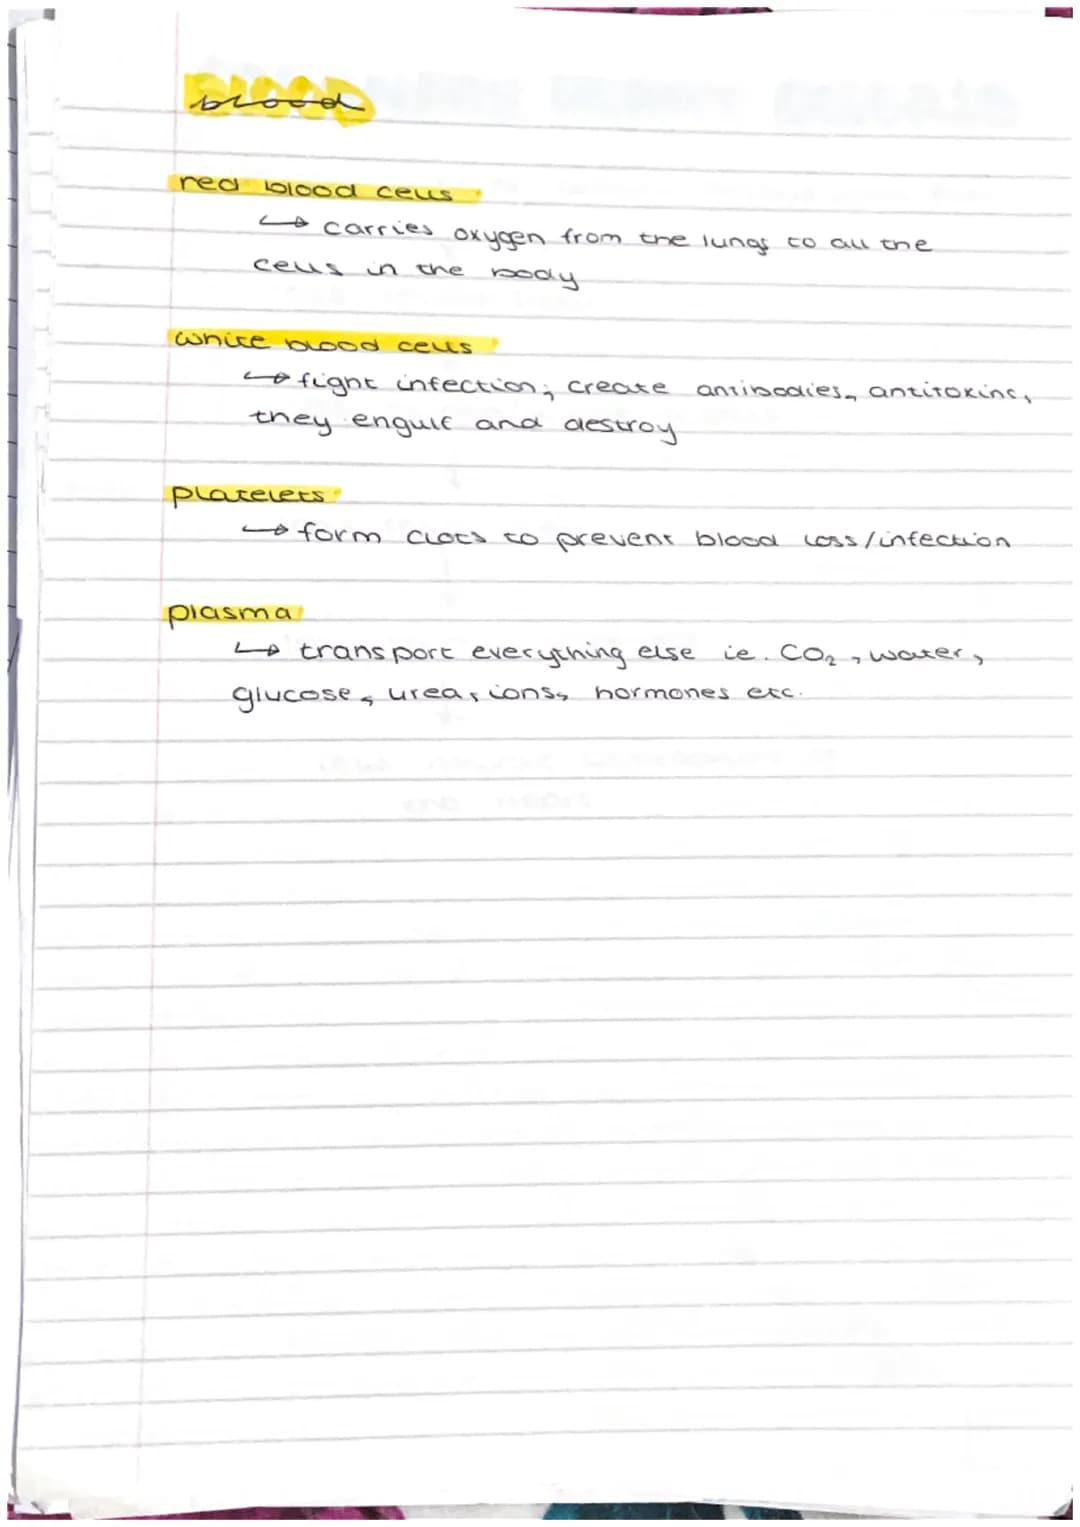 blood
red blood cells
↳ carries oxygen from the lungs to all the
cells in the body
white blood cells
↳ fight infection; create antibodies, antitoxins,
they engulf and destroy
platelets
↳ form clots to prevent blood loss/infection
plasma
↳ transport everything else ie. CO₂, water,
glucose, urea, ions, hormones etc.